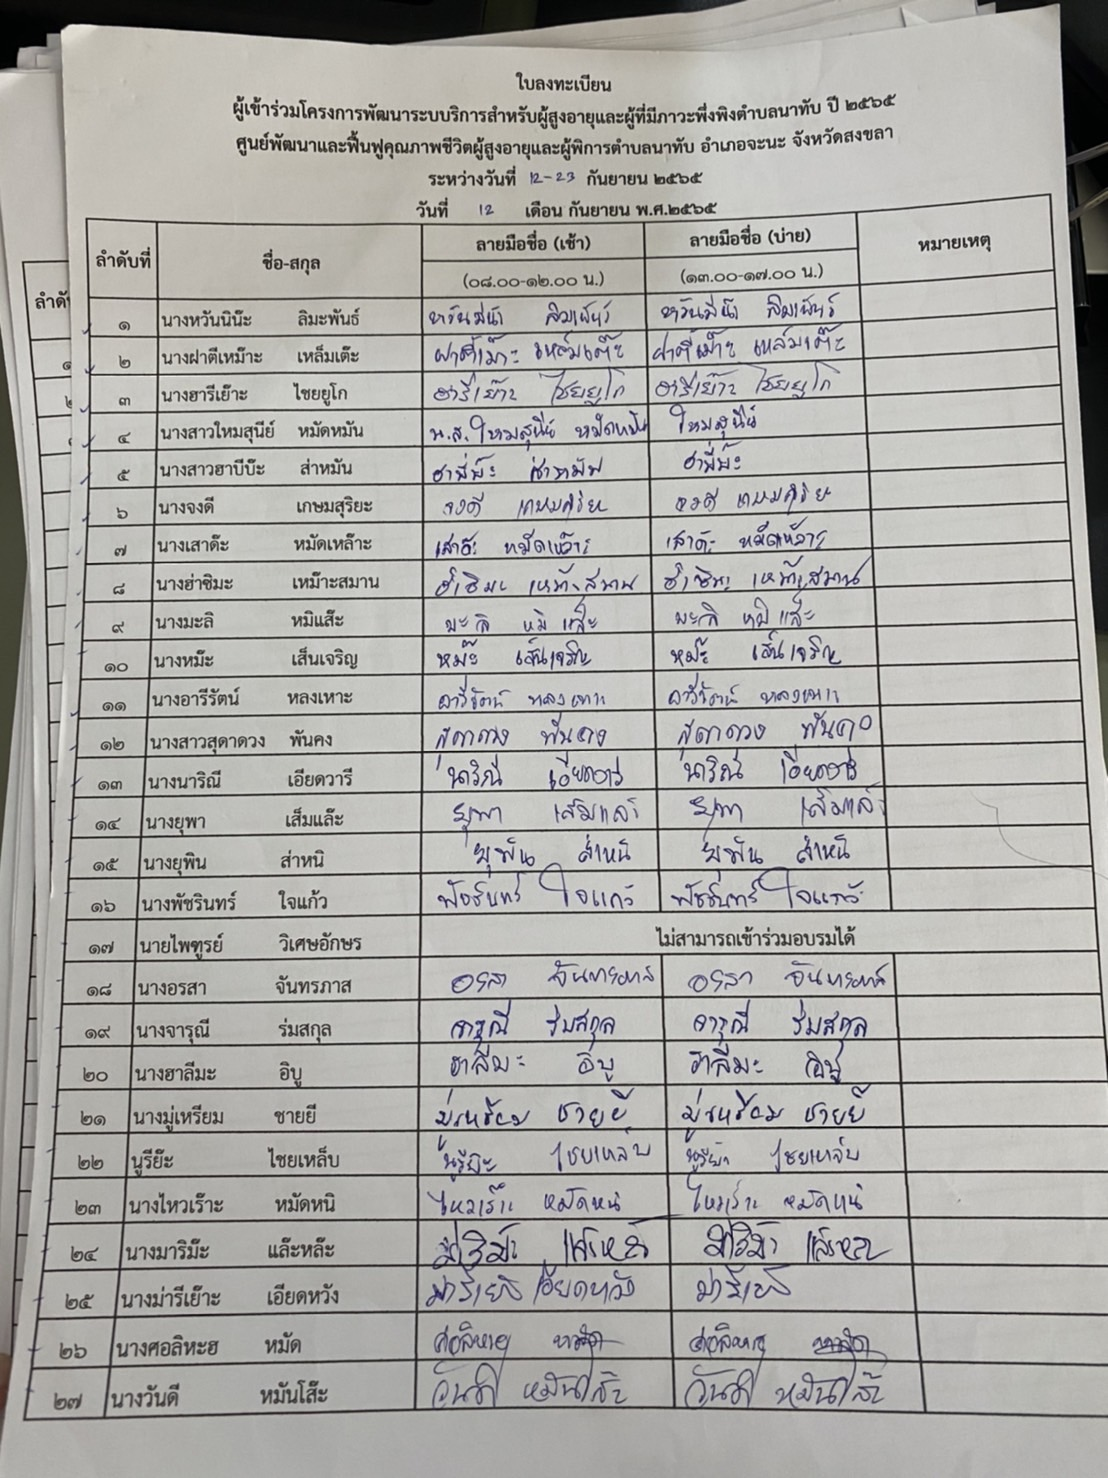 ใบลงทะเบียน
ผู้เข้าร่วมโครงการพัฒนาระบบบริการสำหรับผู้สูงอายุและผู้ที่มีภาวะพึ่งพิงตำบลนาทับ ปี ๒๕๖๕
ศูนย์พัฒนาและฟื้นฟูคุณภาพชีวิตผู้สูงอายุและผู้พิการตำบลนาทับ อำเภอจะนะ จังหวัดสงขลา
ระหว่างวันที่ 12-23 กันยายน ๒๕๖๕
วันที่ 12 เดือน กันยายน พ.ศ.๒๕๖๕
ลำดับที่ ชื่อ-สกุล ลายมือชื่อ (เช้า) ลายมือชื่อ (บ่าย) หมายเหตุ
(๐๘.๐๐-๑๒.๐๐ น.) (๑๓.๐๐-๑๗.๐๐ น.)
๑ นางหวันนิน๊ะ ลิมะพันธ์
๒ นางฝาตีเหม๊าะ เหล็มเต๊ะ ฝาตีเม๊าะ เหล์มเต๊ะ ฝาตีเม๊าะ เหล์มเต๊ะ
๓ นางฮารีเย๊าะ ไชยยูโก ฮารีเย๊าะ ไชยยูโก ฮารีเย๊าะ ไชยยูโก
๔ นางสาวใหมสุนีย์ หมัดหมัน น.ส.ใหมสุนีย์ หมัดหมัน ใหมสุนีย์
๕ นางสาวฮาบีบ๊ะ ส่าหมัน
๖ นางจงดี เกษมสุริยะ จงดี จงดี
๗ นางเสาด๊ะ หมัดเหล๊าะ เสาด๊ะ หมัดเหล๊าะ เสาด๊ะ หมัดเหล๊าะ
๘ นางฮ่าซิมะ เหม๊าะสมาน ฮ่าซิมะ เหม๊าะสมาน ฮ่าซิมะ เหม๊าะสมาน
๙ นางมะลิ หมิแส๊ะ มะลิ หมิแส๊ะ มะลิ หมิแส๊ะ
๑๐ นางหม๊ะ เส็นเจริญ หม๊ะ เส็นเจริญ หม๊ะ เส็นเจริญ
๑๑ นางอารีรัตน์ หลงเหาะ อารีรัตน์ หลงเหาะ อารีรัตน์ หลงเหาะ
๑๒ นางสาวสุดาดวง พันคง สุดาดวง พันคง สุดาดวง พันคง
๑๓ นางนาริณี เอียดวารี นาริณี เอียดวารี นาริณี เอียดวารี
๑๔ นางยุพา เส็มแล๊ะ ยุพา ยุพา
๑๕ นางยุพิน ส่าหนิ ยุพิน ส่าหนิ ยุพิน ส่าหนิ
๑๖ นางพัชรินทร์ ใจแก้ว พัชรินทร์ ใจแก้ว พัชรินทร์ ใจแก้ว
๑๗ นายไพฑูรย์ วิเศษอักษร ไม่สามารถเข้าร่วมอบรมได้
๑๘ นางอรสา จันทรภาส อรสา จันทรภาส อรสา จันทรภาส
๑๙ นางจารุณี ร่มสกุล จารุณี ร่มสกุล จารุณี ร่มสกุล
๒๐ นางฮาลีมะ อิบู ฮาลีมะ อิบู ฮาลีมะ อิบู
๒๑ นางมู่เหรียม ชายยี มู่เหรียม ชายยี มู่เหรียม ชายยี
๒๒ นูรีย๊ะ ไชยเหล็บ นูรีย๊ะ ไชยเหล็บ ไชยเหล็บ
๒๓ นางไหวเร๊าะ หมัดหนิ ไหวเร๊าะ หมัดหนิ ไหวเร๊าะ หมัดหนิ
๒๔ นางมาริม๊ะ แล๊ะหล๊ะ
๒๕ นางม่ารีเย๊าะ เอียดหวัง เอียดหวัง
๒๖ นางศอลิหะฮ หมัด
๒๗ นางวันดี หมันโส๊ะ วันดี หมันโส๊ะ วันดี หมันโส๊ะ